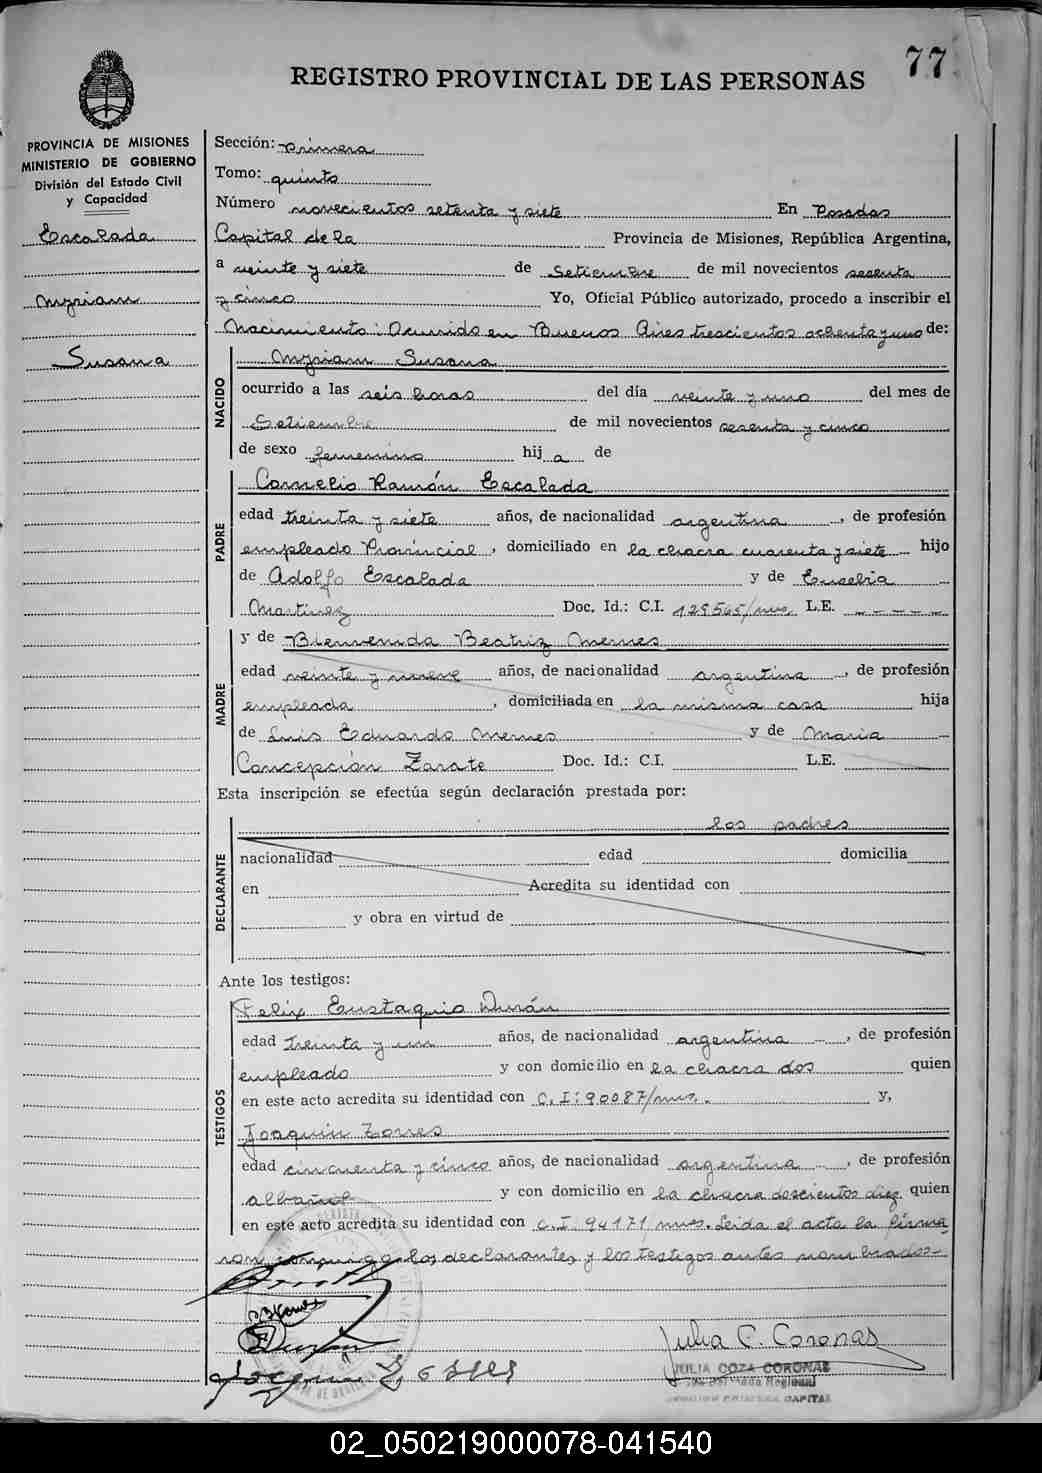 77
REGISTRO PROVINCIAL DE LAS PERSONAS
PROVINCIA DE MISIONES
MINISTERIO DE GOBIERNO
División del Estado Civil
y Capacidad
Escalada
Myriam
Susana
Sección: primera
Tomo: quinto
Número novecientos setenta y siete En Posadas
Capital de la Provincia de Misiones, República Argentina,
a veinte y siete de Setiembre de mil novecientos sesenta
y cinco Yo, Oficial Público autorizado, procedo a inscribir el
Nacimiento: Ocurrido en Buenos Aires trescientos ochenta y uno de:
NACIDO
Myriam Susana
ocurrido a las seis horas del día veinte y uno del mes de
Setiembre de mil novecientos sesenta y cinco
de sexo femenino hij a de
PADRE
Cornelio Ramón Escalada
edad treinta y siete años, de nacionalidad argentina, de profesión
empleado Provincial, domiciliado en la chacra cuarenta y siete hijo
de Adolfo Escalada y de Eusebia
Martinez Doc. Id.: C.I. 129565/mns. L.E. - - - - -
MADRE
y de Bienvenida Beatriz Mernes
edad veinte y nueve años, de nacionalidad argentina, de profesión
empleada, domiciliada en la misma casa hija
de Luis Eduardo Mernes y de Maria
Concepción Zarate Doc. Id.: C.I. L.E.
Esta inscripción se efectúa según declaración prestada por:
DECLARANTE
los padres
nacionalidad edad domicilia
en Acredita su identidad con
y obra en virtud de
Ante los testigos:
TESTIGOS
Felix Eustaquio Durán
edad treinta y un años, de nacionalidad argentina, de profesión
empleado y con domicilio en la chacra dos quien
en este acto acredita su identidad con C.I: 90087/mns. y,
Joaquin Torres
edad cincuenta y cinco años, de nacionalidad argentina, de profesión
albañil y con domicilio en la chacra doscientos diez quien
en este acto acredita su identidad con C.I: 94171/mns. Leida el acta la firma
ron conmigo los declarantes y los testigos antes nombrados-
Julia C. Coronas
JULIA COZA CORONAS
02_050219000078-041540